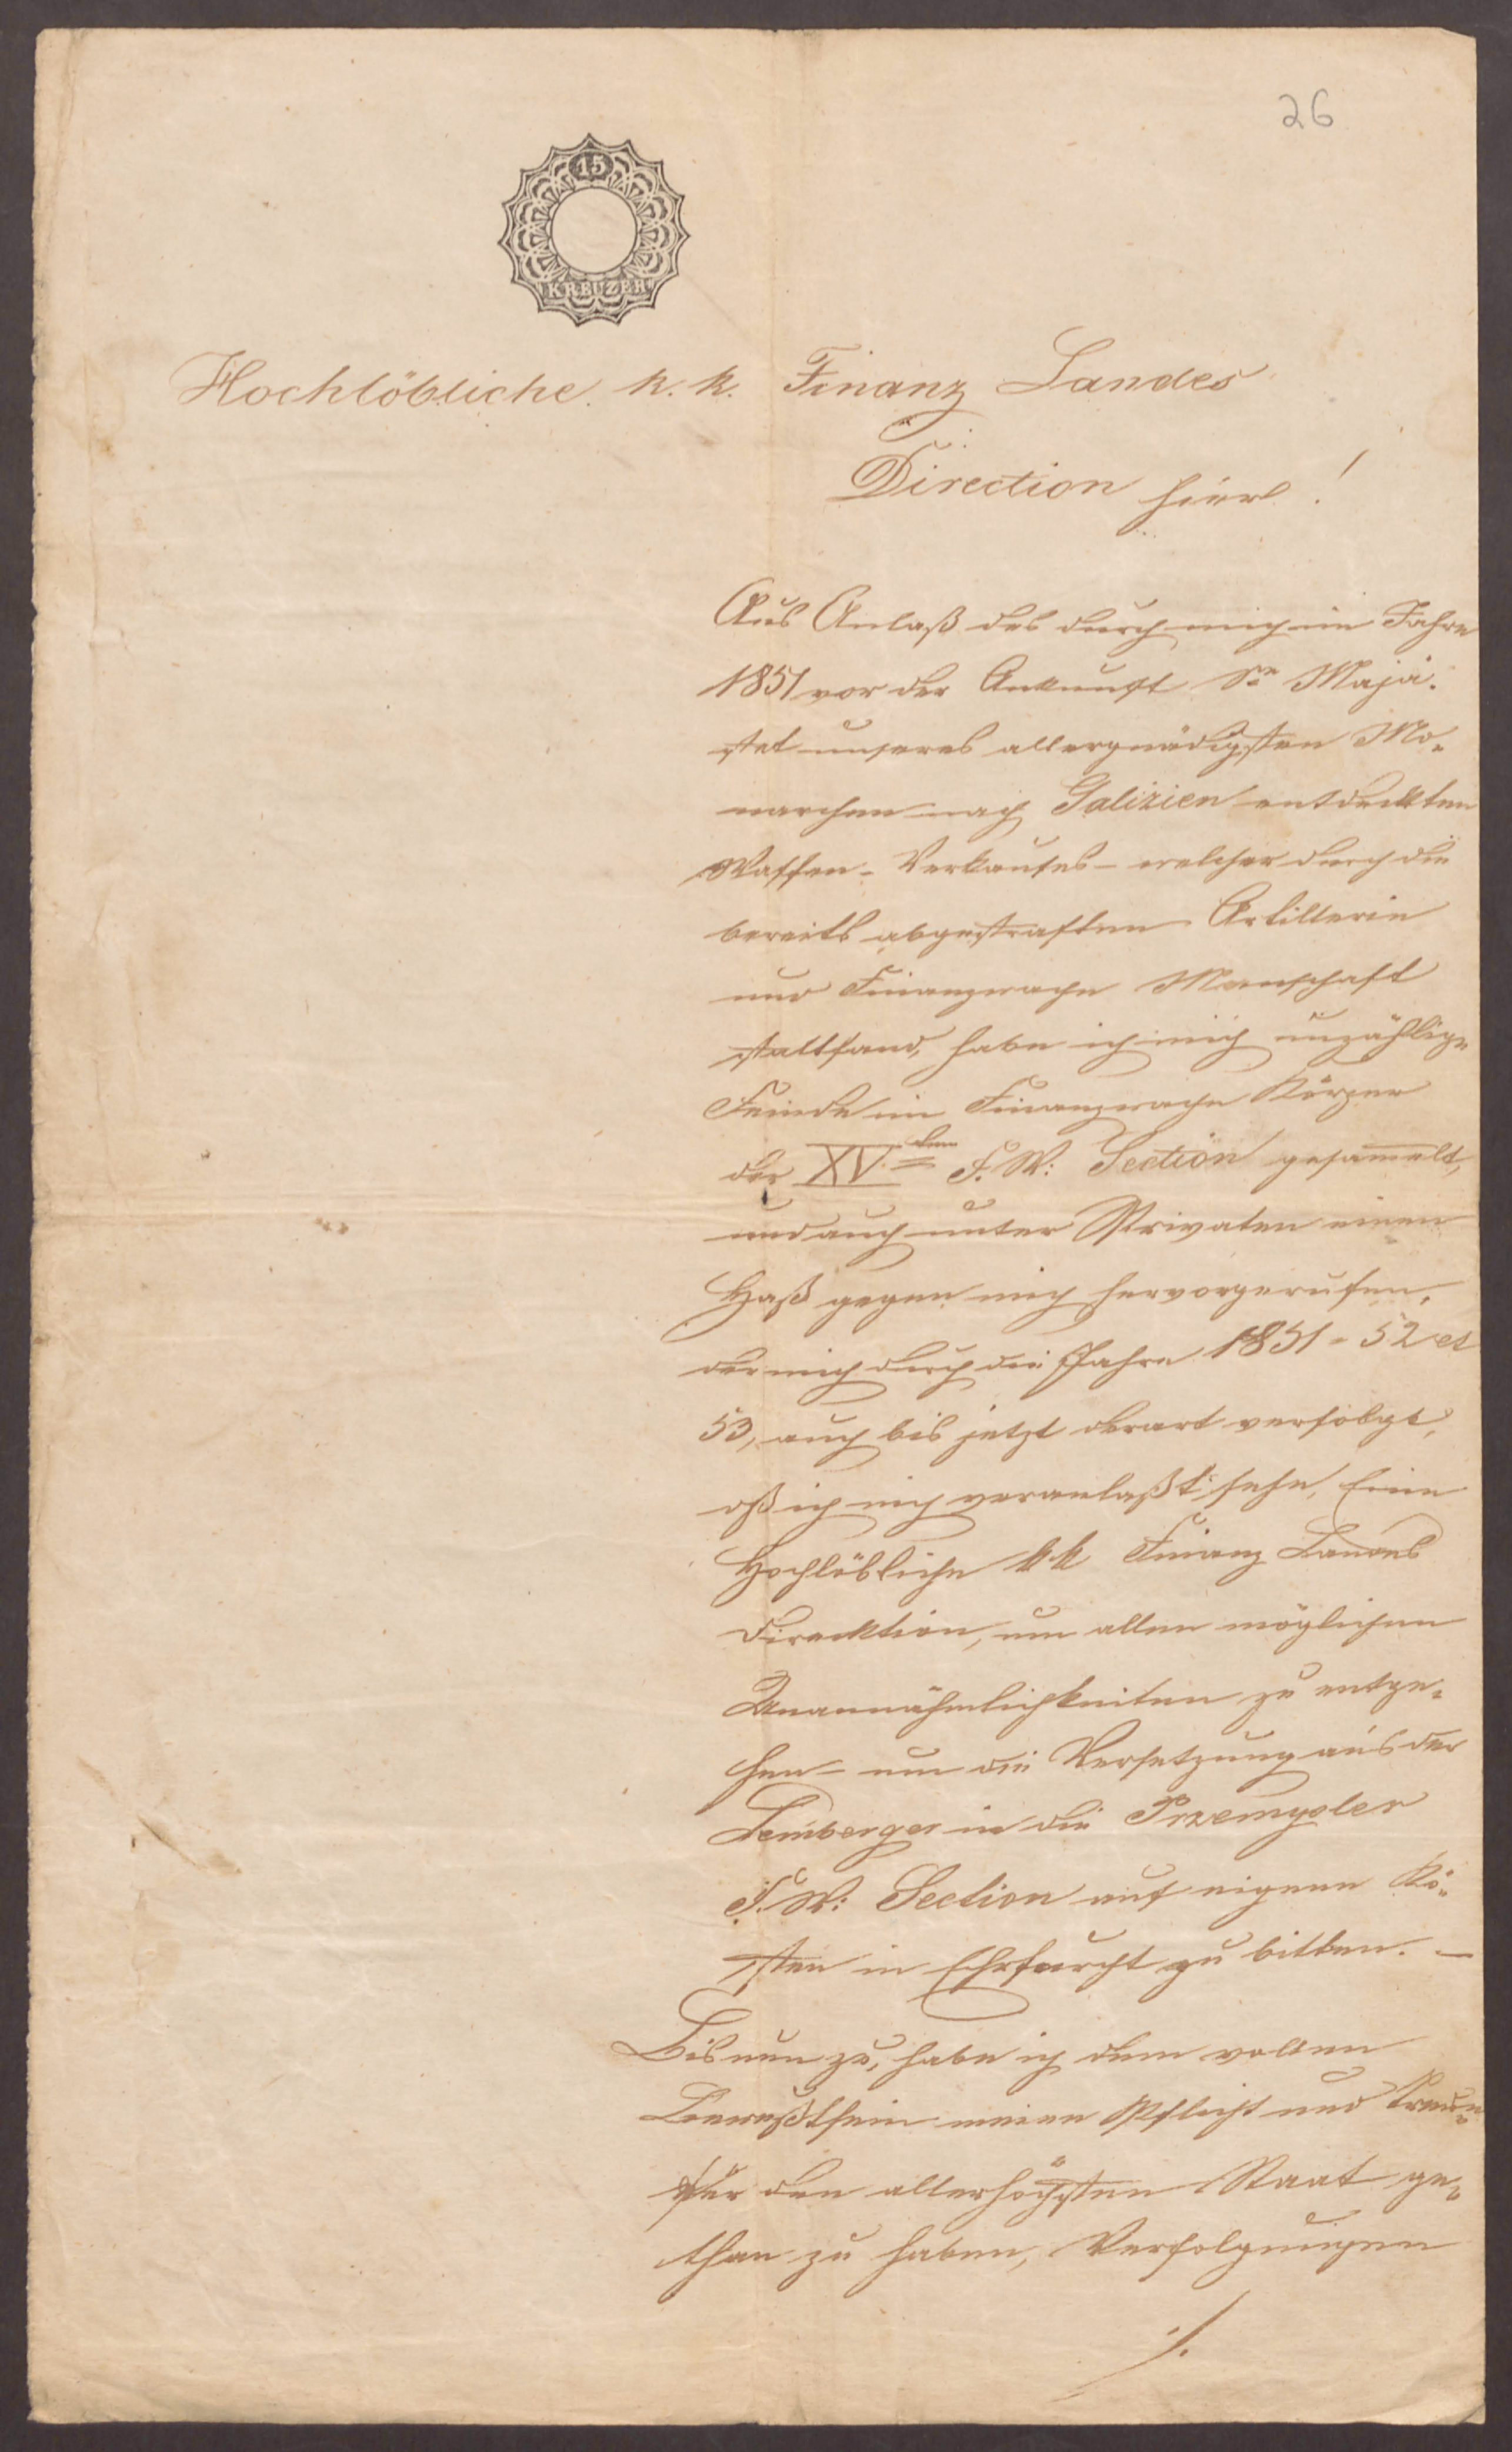 26
15
KREUZER
Hochlöbliche k. k. Finanz Landes
Direction hier!
Aus Anlaß des durch mich im Jahre
1851 vor der Ankunft Sr Majä-
stet unseres allergnädigsten Mo-
narchen nach Galizien entdeckten
Waffen-Verkaufes – welcher durch die
bereits abgestraften Artillerie
und Finanzwache Manschaft
stattfand, habe ich mich unzählige
Feinde im Finanzwache Körper
der XV.ten F. W: Section gesamelt,
und auch unter Privaten einen
Haß gegen mich hervorgerufen,
der mich durch die Jahre 1851 - 52 et
53, auch bis jetzt derart verfolgt,
dß ich mich veranlaßt sehe, Eine
Hochlöbliche k k Finanz Landes
Direcktion, um allen möglichen
Unannähmlichkeiten zu entge-
hen – um die Versetzung aus der
Lemberger in die Przemysler
F. W: Section auf eigene Ko-
sten in Ehrfurcht zu bitten. –
Bis nun zu, habe ich dem vollen
Bewußtsein meine Pflicht und Treue
für den allerhöchsten Staat ge-
than zu haben, Verfolgungen
./.